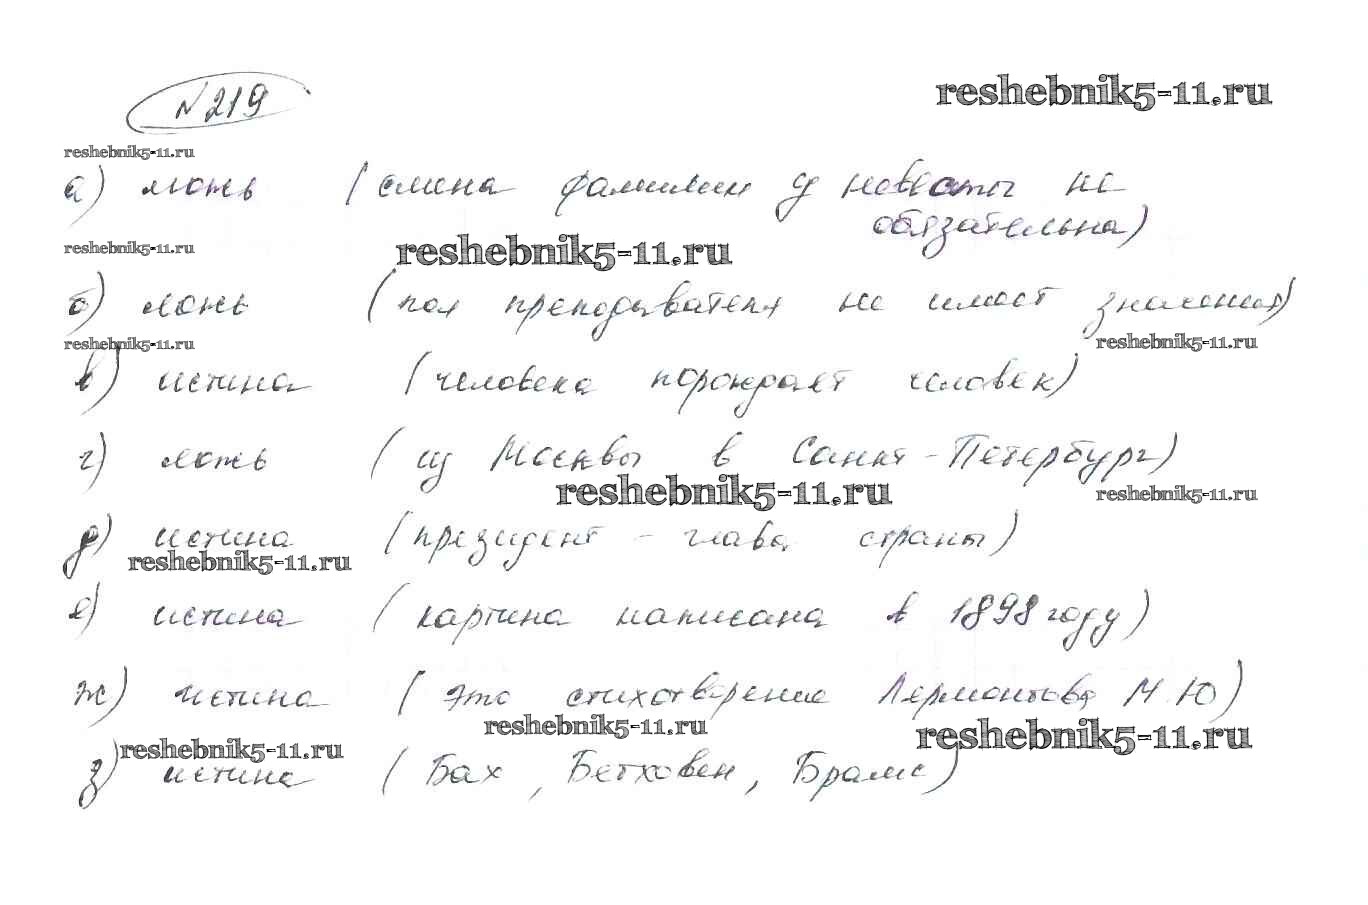 №219
reshebnik5-11.ru
reshebnik5-11.ru
а) ложь (смена фамилии у невесты не
обязательна)
reshebnik5-11.ru
reshebnik5-11.ru
б) ложь (пол преподавателя не имеет значения)
reshebnik5-11.ru
reshebnik5-11.ru
в) истина (человека порождает человек)
г) ложь (из Москвы в Санкт-Петербург)
reshebnik5-11.ru
reshebnik5-11.ru
д) истина (президент - глава страны)
reshebnik5-11.ru
е) истина (картина написана в 1898 году)
ж) истина (это стихотворение Лермонтова М.Ю)
reshebnik5-11.ru
reshebnik5-11.ru
reshebnik5-11.ru
з) истина (Бах, Бетховен, Брамс)